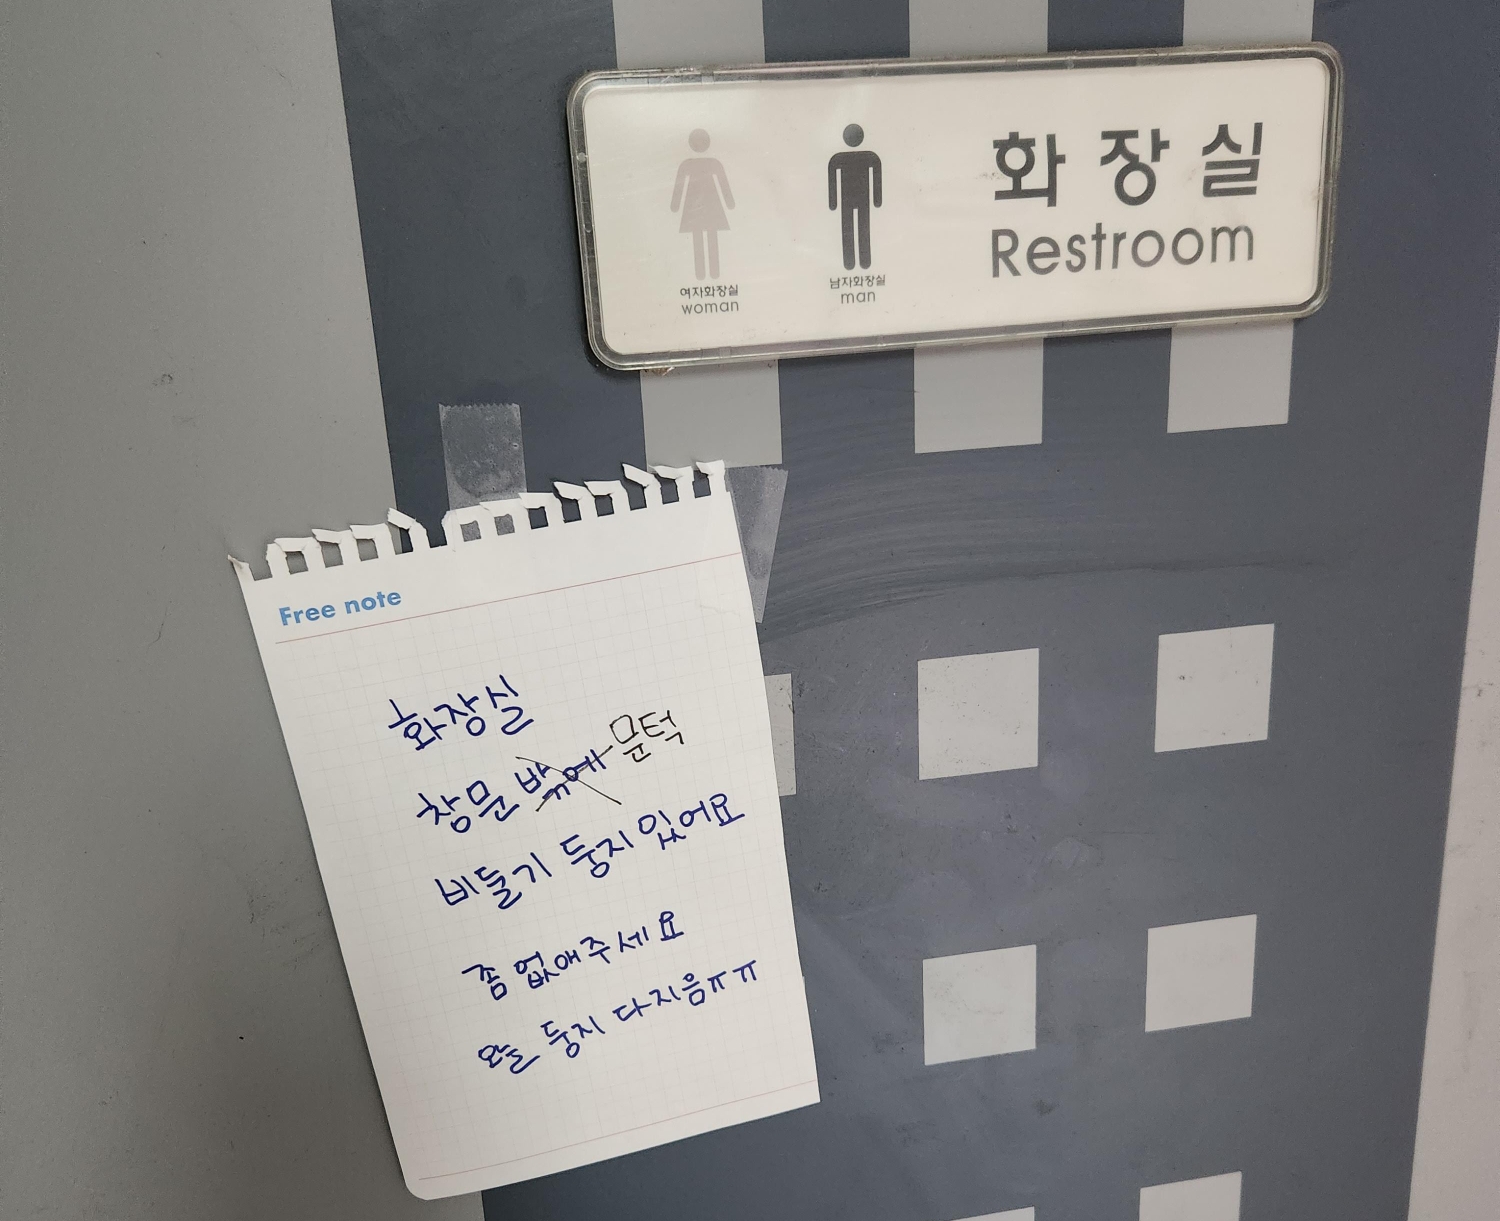 화장실
Restroom
여자화장실
woman
남자화장실
man
Free note
화장실
창문 밖에 문턱
비둘기 둥지 있어요
좀 없애주세요
오늘 둥지 다지음ㅠㅠ